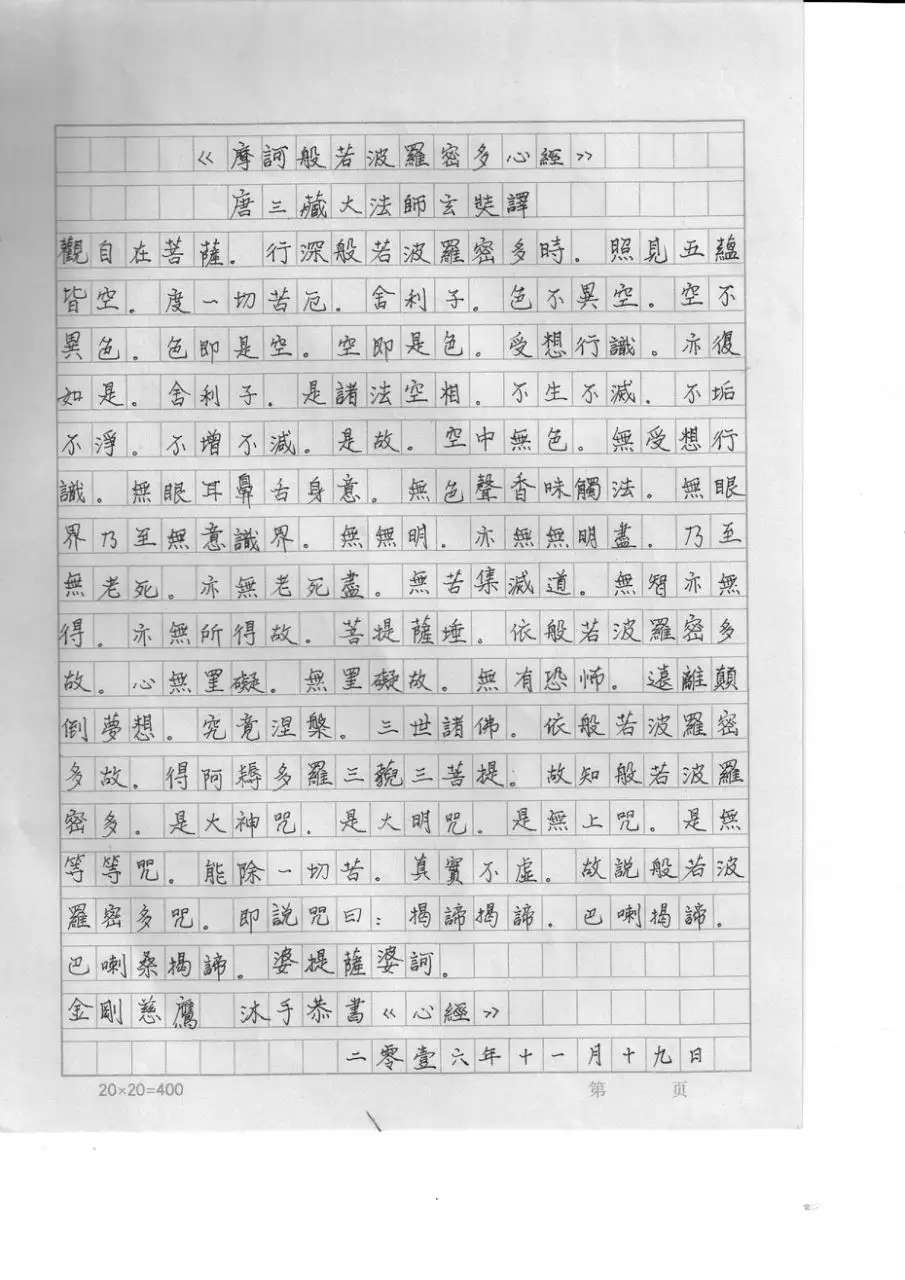 《摩訶般若波羅密多心經》
唐三藏大法師玄奘譯
觀自在菩薩。行深般若波羅密多時。照見五蘊
皆空。度一切苦厄。舍利子。色不異空。空不
異色。色即是空。空即是色。受想行識。亦復
如是。舍利子。是諸法空相。不生不滅。不垢
不淨。不增不減。是故。空中無色。無受想行
識。無眼耳鼻舌身意。無色聲香味觸法。無眼
界乃至無意識界。無無明。亦無無明盡。乃至
無老死。亦無老死盡。無苦集滅道。無智亦無
得。亦無所得故。菩提薩埵。依般若波羅密多
故。心無罣礙。無罣礙故。無有恐怖。遠離顛
倒夢想。究竟涅槃。三世諸佛。依般若波羅密
多故。得阿耨多羅三藐三菩提。故知般若波羅
密多。是大神咒。是大明咒。是無上咒。是無
等等咒。能除一切苦。真實不虛。故說般若波
羅密多咒。即說咒曰：揭諦揭諦。巴喇揭諦。
巴喇桑揭諦。婆提薩婆訶。
金剛慈鷹 沐手恭書《心經》
二零壹六年十一月十九日
20×20=400 第 页